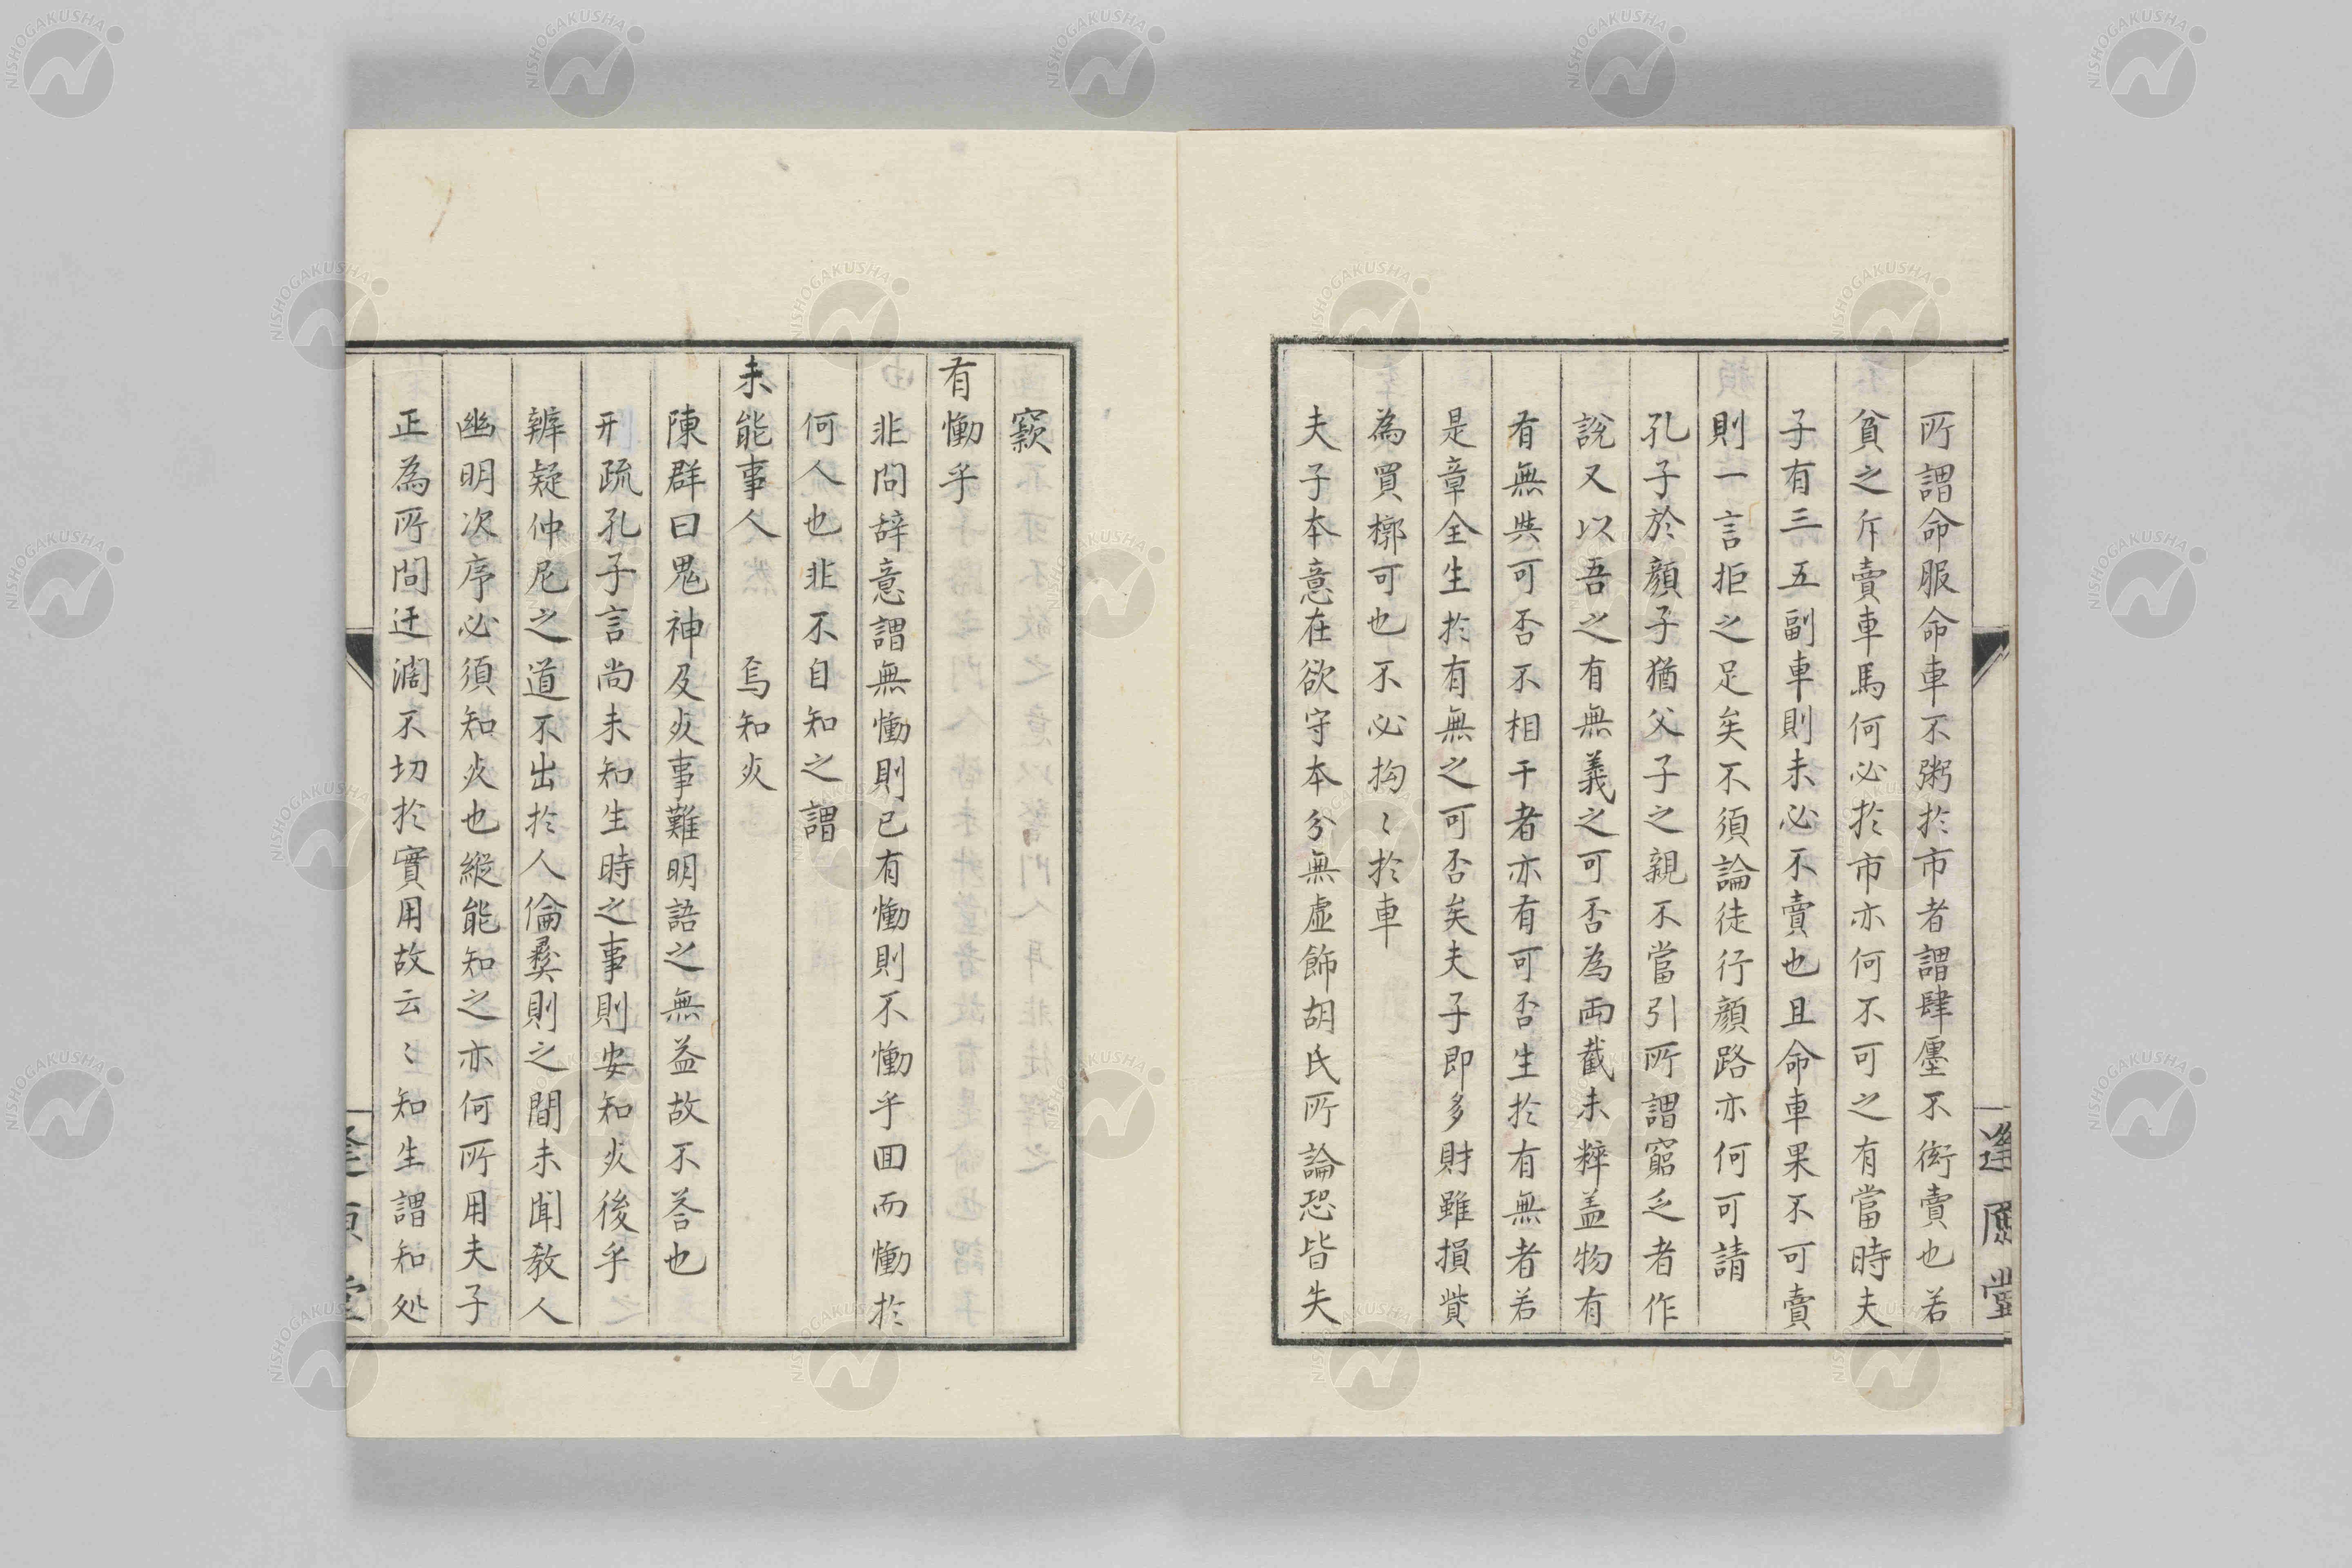 所謂命服命車不粥於市者謂肆廛不衒賣也若
貧之斥賣車馬何必於市亦何不可之有當時夫
子有三五副車則未必不賣也且命車果不可賣
則一言拒之足矣不須論徒行顔路亦何可請
孔子於顔子猶父子之親不當引所謂窮乏者作
說又以吾之有無義之可否為両截未粹盖物有
有無與可否不相干者亦有可否生於有無者若
是章全生於有無之可否矣夫子即多財雖損貲
為買槨可也不必拘〻於車
夫子本意在欲守本分無虛飾胡氏所論恐皆失
窾
有慟乎
非問辞意謂無慟則已有慟則不慟乎回而慟於
何人也非不自知之謂
未能事人 焉知死
陳群曰鬼神及死事難明語之無益故不荅也
刑疏孔子言尚未知生時之事則安知死後乎
辨疑仲尼之道不出於人倫彜則之間未聞教人
幽明次序必須知死也縱能知之亦何所用夫子
正為所問迂濶不切於實用故云〻知生謂知処
逢原堂
NISHOGAKUSHA